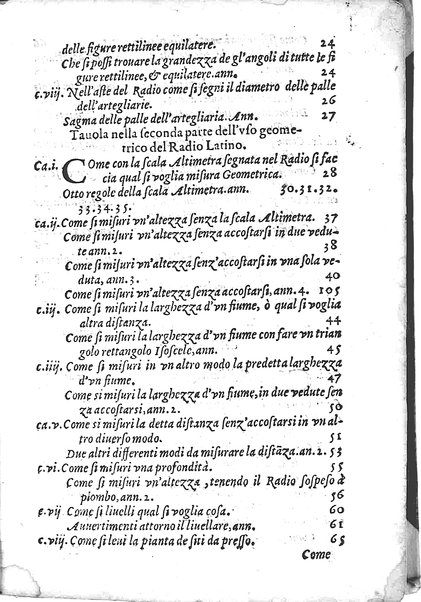 delle figure rettilinee equilatere. 24
Che si possi trouare la grandezza de gl'angoli di tutte le fi
gure rettilinee, & equilatere.ann. 24
c.viij. Nell'aste del Radio come si segni il diametro delle palle
dell'artegliarie. 26
Sagma delle palle dell'artegliaria. Ann. 27
Tauola nella seconda parte dell'vso geome-
trico del Radio Latino.
Ca.i. COme con la scala Altimetra segnata nel Radio si fac
cia qual si voglia misura Geometrica. 28
Otto regole della scala Altimetra.ann. 30.31.32.
33.34.35.
ca.ij. Come si misuri vn'altezza senza la scala Altimetra. 37
Come si misuri vn'altezza senza accostarsi in due vedu-
te ann.2. 38
Come si misuri vn'altezza senz'accostarsi in vna sola ve-
duta, ann.3. 40
Come si misuri vn'altezza senza accostarsi, ann.4. 105
c.iij. Come si misuri la larghezza d'vn fiume, ò qual si voglia
altra distanza. 44
Come si misuri la larghezza d'vn fiume con fare vn trian
golo rettangolo Isoscele, ann. 45
c.iiij. Come si misuri in vn altro modo la predetta larghezza
d'vn fiume. 47
Come si misuri la larghezza d'vn fiume, in due vedute sen
za accostarsi, ann.2. 50
ca.v. Come si misuri la detta distanza senz'accostarsi in vn al-
tro diuerso modo. 51
Due altri differenti modi da misurare la distāza.an.2. 53
c.vi. Come si misuri vna profondità. 55
Come si misuri vn'altezza, tenendo il Radio sospeso à
piombo, ann.2. 56
c.vij Come si liuelli qual si voglia cosa. 60
Auuertimenti attorno il liuellare, ann. 61
c.viij. Come si leui la pianta de siti da presso. 65
Come